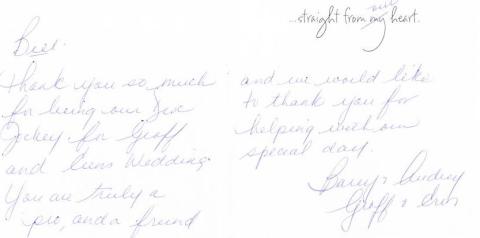 ...straight from my heart.
our
Bill.
Thank you so much
for being our Disc
Jockey for Geoff
and Erins Wedding.
You are truly a
pro, and a friend
and we would like
to thank you for
helping with our
special day.
Barry & Audrey
Geoff & Erin